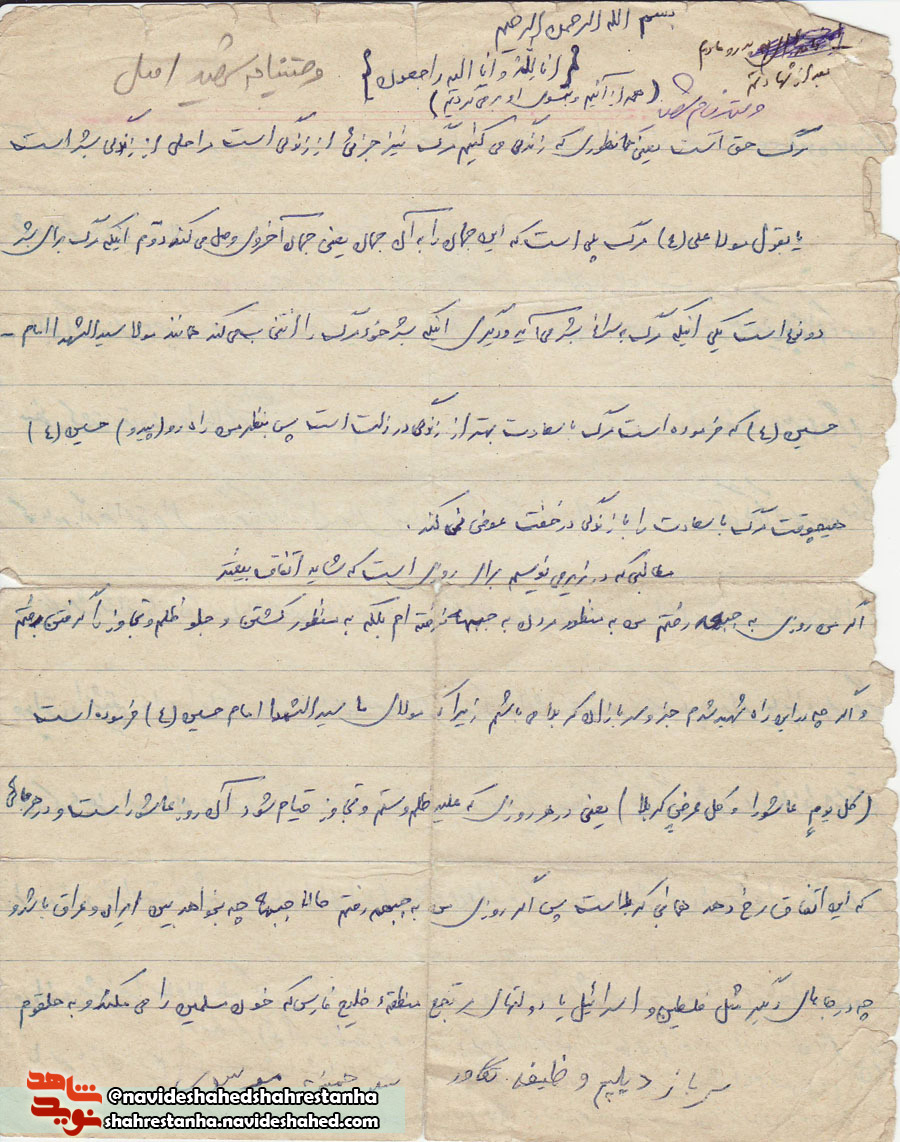 بسم الله الرحمن الرحیم
به روایت
بعد از شهادتم
{ انا لله و انا الیه راجعون }
وصیتنامه شهید اصل
( همه از آنیم و بسوی او برمی گردیم )
وصیتنامه
مرگ حق است یعنی همانطوری که زندگی می کنیم مرگ نیز جزئی از زندگی است مراحلی از زندگی بشر است
یا بقول مولا علی (ع) مرگ پلی است که این جهان را به آن جهان یعنی جهان آخروی وصل می کند دوّم اینکه مرگ برای بشر
دو نوع است یکی اینکه مرگ به سراغ بشر می آید و دیگری اینکه بشر خود مرگ را انتخاب می کند مانند مولا سید الشهدا امام –
حسین (ع) که فرموده است مرگ با سعادت بهتر از زندگی در ذلت است پس بنظر من راه رو (پیرو) حسین (ع)
هیچوقت مرگ با سعادت را با زندگی در خفت عوض نمی کند .
مطالبی که در زیر می نویسم برای روزی است که شاید اتفاق بیفتد
اگر من روزی به جبهه رفتم من به منظور مردن به جبهه نرفته ام بلکه به منظور کشتن و جلو ظلم و تجاوز را گرفتن رفتم
و اگر چه در این راه شهید شدم جزو سربازان کربلا می باشم زیرا که مولای ما سید الشهدا امام حسین (ع) فرموده است
( کل یومٍ عاشورا و کل عرضٍ کربلا ) یعنی در هر روزی که علیه ظلم و ستم و تجاوز قیام شود آن روز عاشورا است و در هر جائی
که این اتفاق رخ دهد همانجا کربلا است پس اگر روزی من به جبهه رفتم حالا جبهه چه بخواهد بین ایران و عراق باشد و
چه در جاهای دیگر مثل فلسطین و اسرائیل یا دولتهای مرتجع منطقهٔ خلیج فارس که خون مسلمین را می مکند و به حلقوم
سرباز دیپلم وظیفه تکاور
سید حمزه موسوی
شاهد نوید
@navideshahedshahrestanha
shahrestanha.navideshahed.com